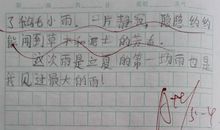 了稍许小雨。一片静寂，隐隐约约
能闻到草木和泥土的芳香。
这次雨是这夏的第一场雨也是
我见过最大的雨！